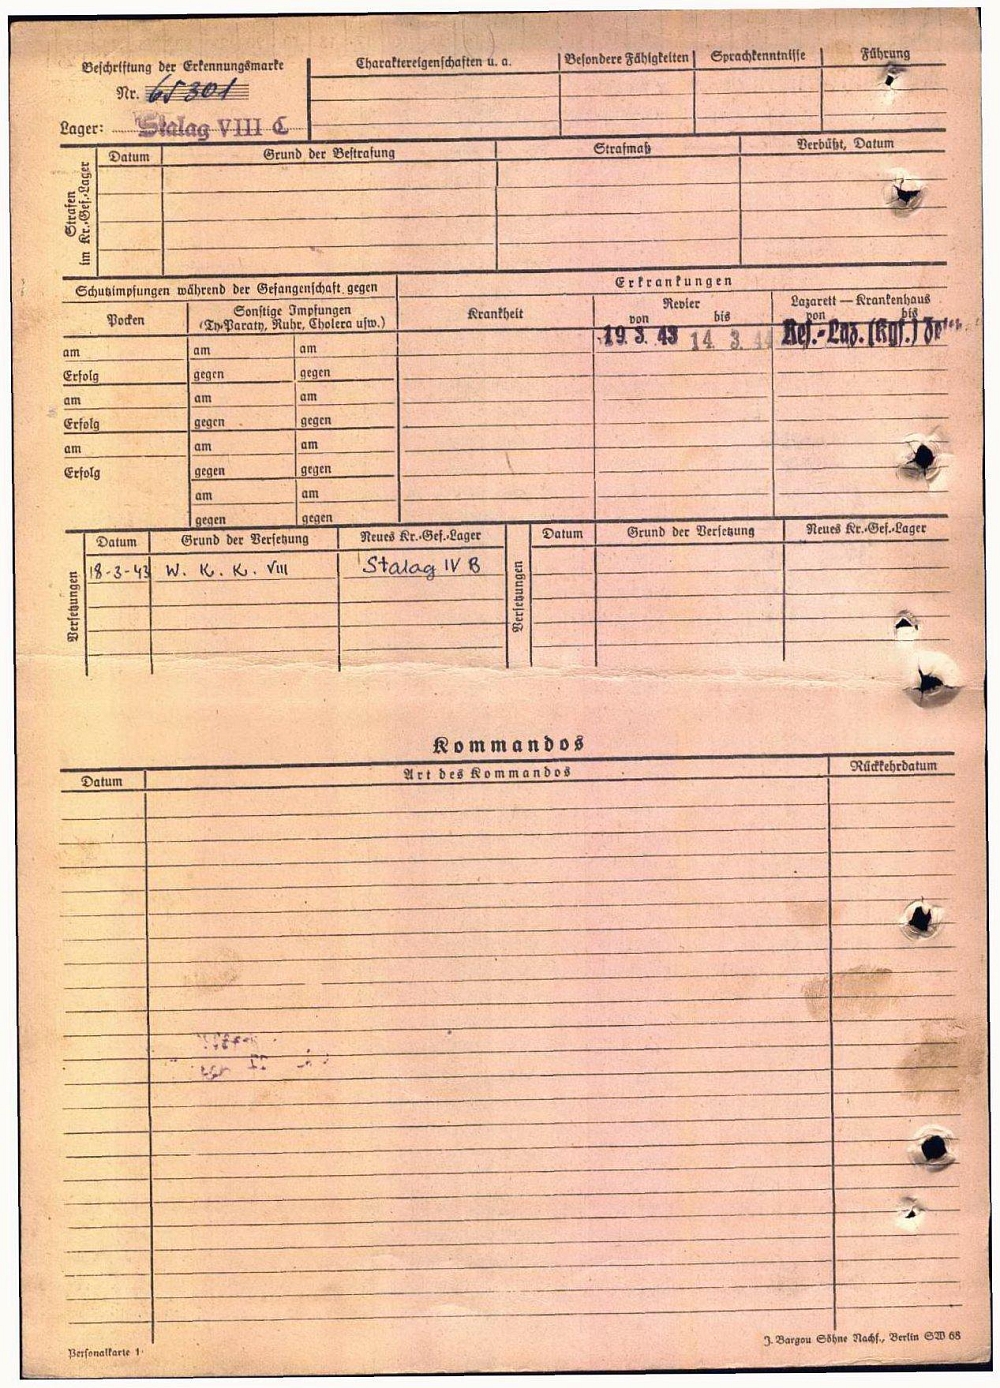 Beschriftung der Erkennungsmarke
Nr. 65301
Lager: Stalag VIII C
Charaktereigenschaften u. a. Besondere Fähigkeiten Sprachkenntnisse Führung
Strafen im Kr.-Gef.-Lager
Datum Grund der Bestrafung Strafmaß Verbüßt, Datum
Schutzimpfungen während der Gefangenschaft gegen Erkrankungen
Pocken Sonstige Impfungen Krankheit Revier Lazarett — Krankenhaus
(Ty.-Paraty, Ruhr, Cholera usw.) von bis von bis
19. 3. 43 14. 3. 44 Res.-Laz. (Kgf.)
am am am
Erfolg gegen gegen
am am am
Erfolg gegen gegen
am am am
Erfolg gegen gegen
am am
gegen gegen
Versetzungen
Datum Grund der Versetzung Neues Kr.-Gef.-Lager
18-3-43 W. K. K. VIII Stalag IV B
Versetzungen
Datum Grund der Versetzung Neues Kr.-Gef.-Lager
Kommandos
Datum Art des Kommandos Rückkehrdatum
Personalkarte 1
J. Bargou Söhne Nachf., Berlin SW 68